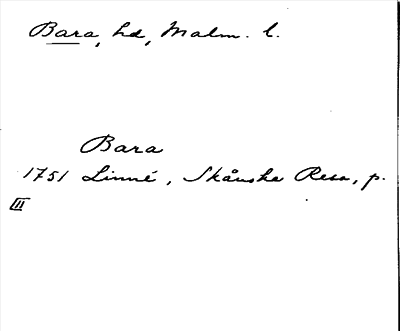 Bara, hd, Malm. l.
Bara
1751 Linné, Skånska Resa, p.
III